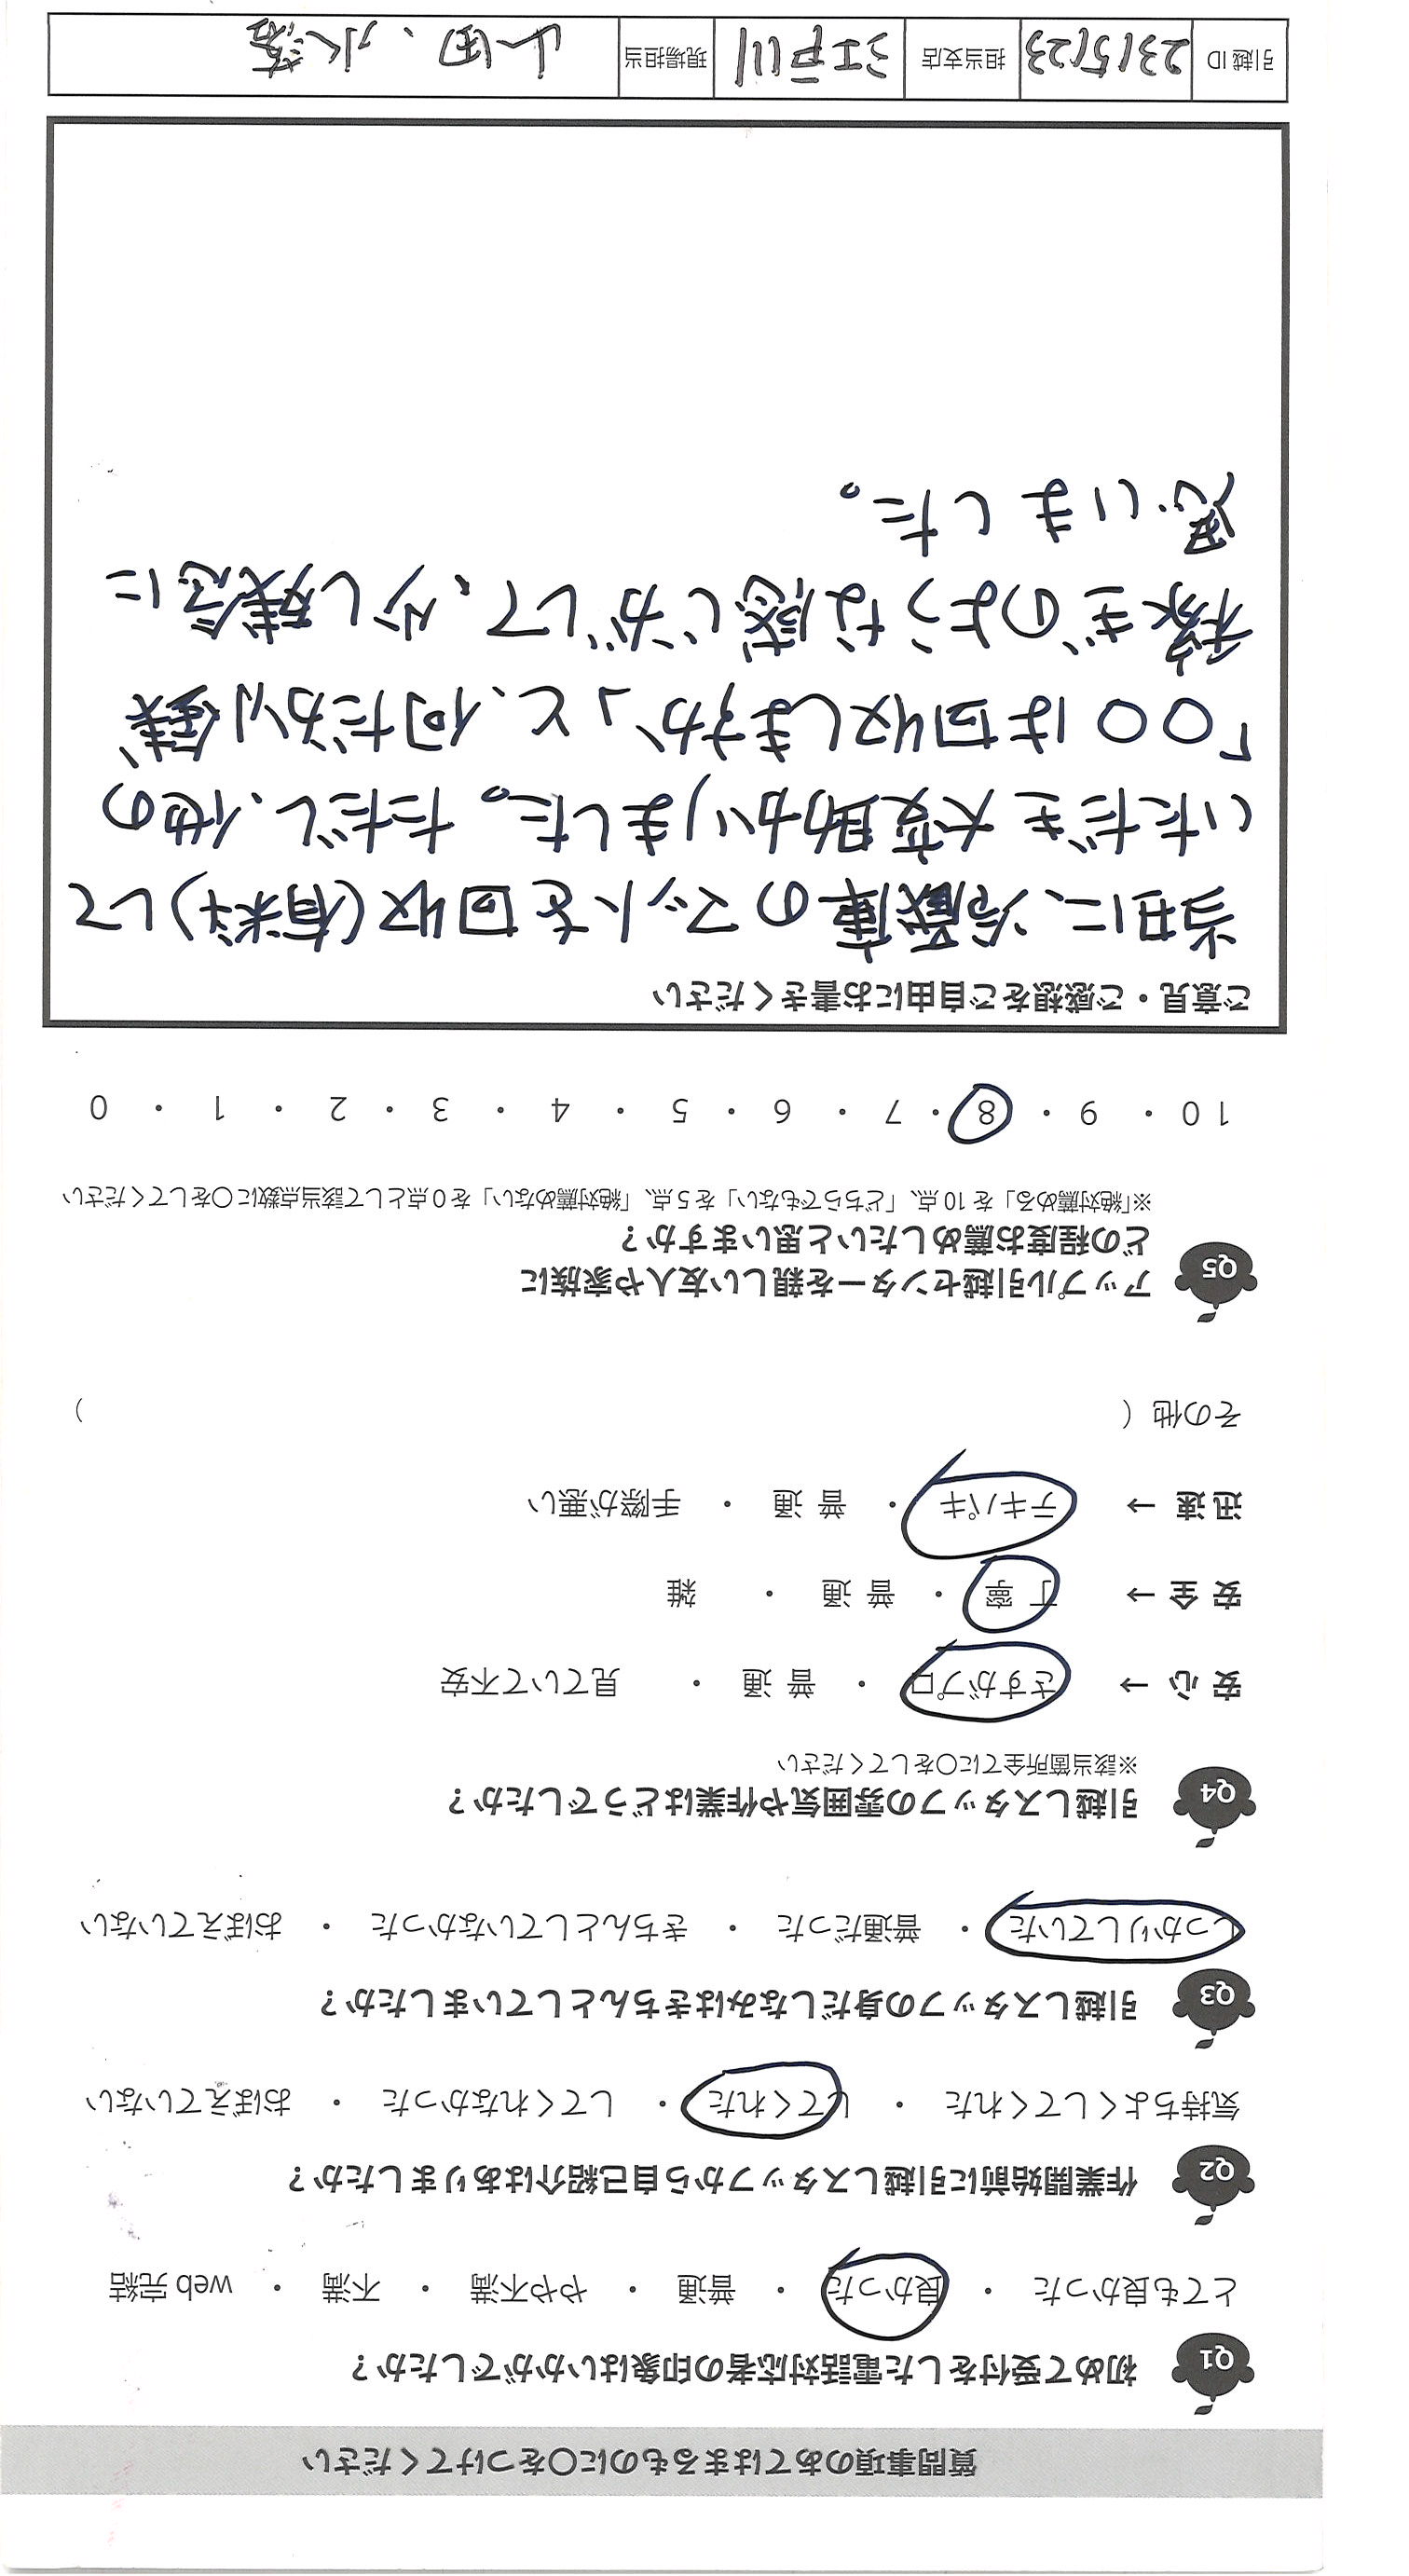 質問事項のあてはまるものに○をつけてください
Q1 初めて受付をした電話対応者の印象はいかがでしたか？
とても良かった ・ 良かった ・ 普通 ・ やや不満 ・ 不満 ・ web 完結
Q2 作業開始前に引越しスタッフから自己紹介はありましたか？
気持ちよくしてくれた ・ してくれた ・ してくれなかった ・ おぼえていない
Q3 引越しスタッフの身だしなみはきちんとしていましたか？
しっかりしていた ・ 普通だった ・ きちんとしていなかった ・ おぼえていない
Q4 引越しスタッフの雰囲気や作業はどうでしたか？
※該当箇所全てに○をしてください
安心 → さすがプロ ・ 普通 ・ 見ていて不安
安全 → 丁寧 ・ 普通 ・ 雑
迅速 → テキパキ ・ 普通 ・ 手際が悪い
その他（ ）
Q5 アップル引越センターを親しい友人や家族に
どの程度お薦めしたいと思いますか？
※「絶対薦める」を 10 点、「どちらでもない」を 5 点、「絶対薦めない」を 0 点として該当点数に○をしてください
10 ・ 9 ・ 8 ・ 7 ・ 6 ・ 5 ・ 4 ・ 3 ・ 2 ・ 1 ・ 0
ご意見・ご感想をご自由にお書きください
当日に、冷蔵庫のマットを回収(有料)して
いただき大変助かりました。ただし、他の
「○○は回収しますか」と、何だか小銭
稼ぎのような感じがして、少し残念に
思いました。
引越 ID 23/5/23 担当支店 江戸川 現場担当 山田、水落